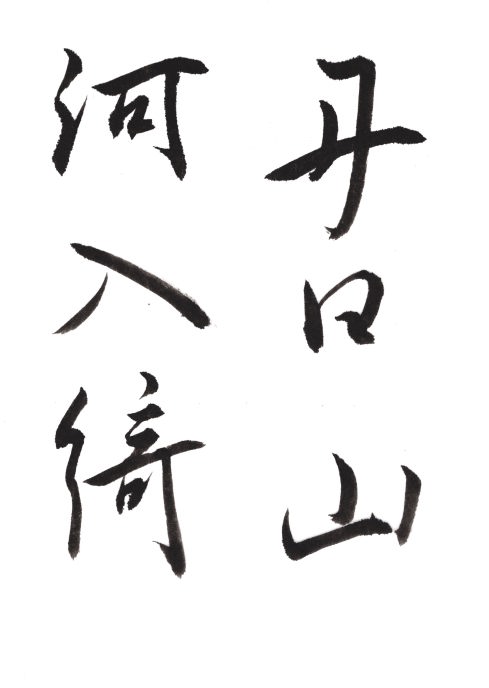 丹日山
河入綺